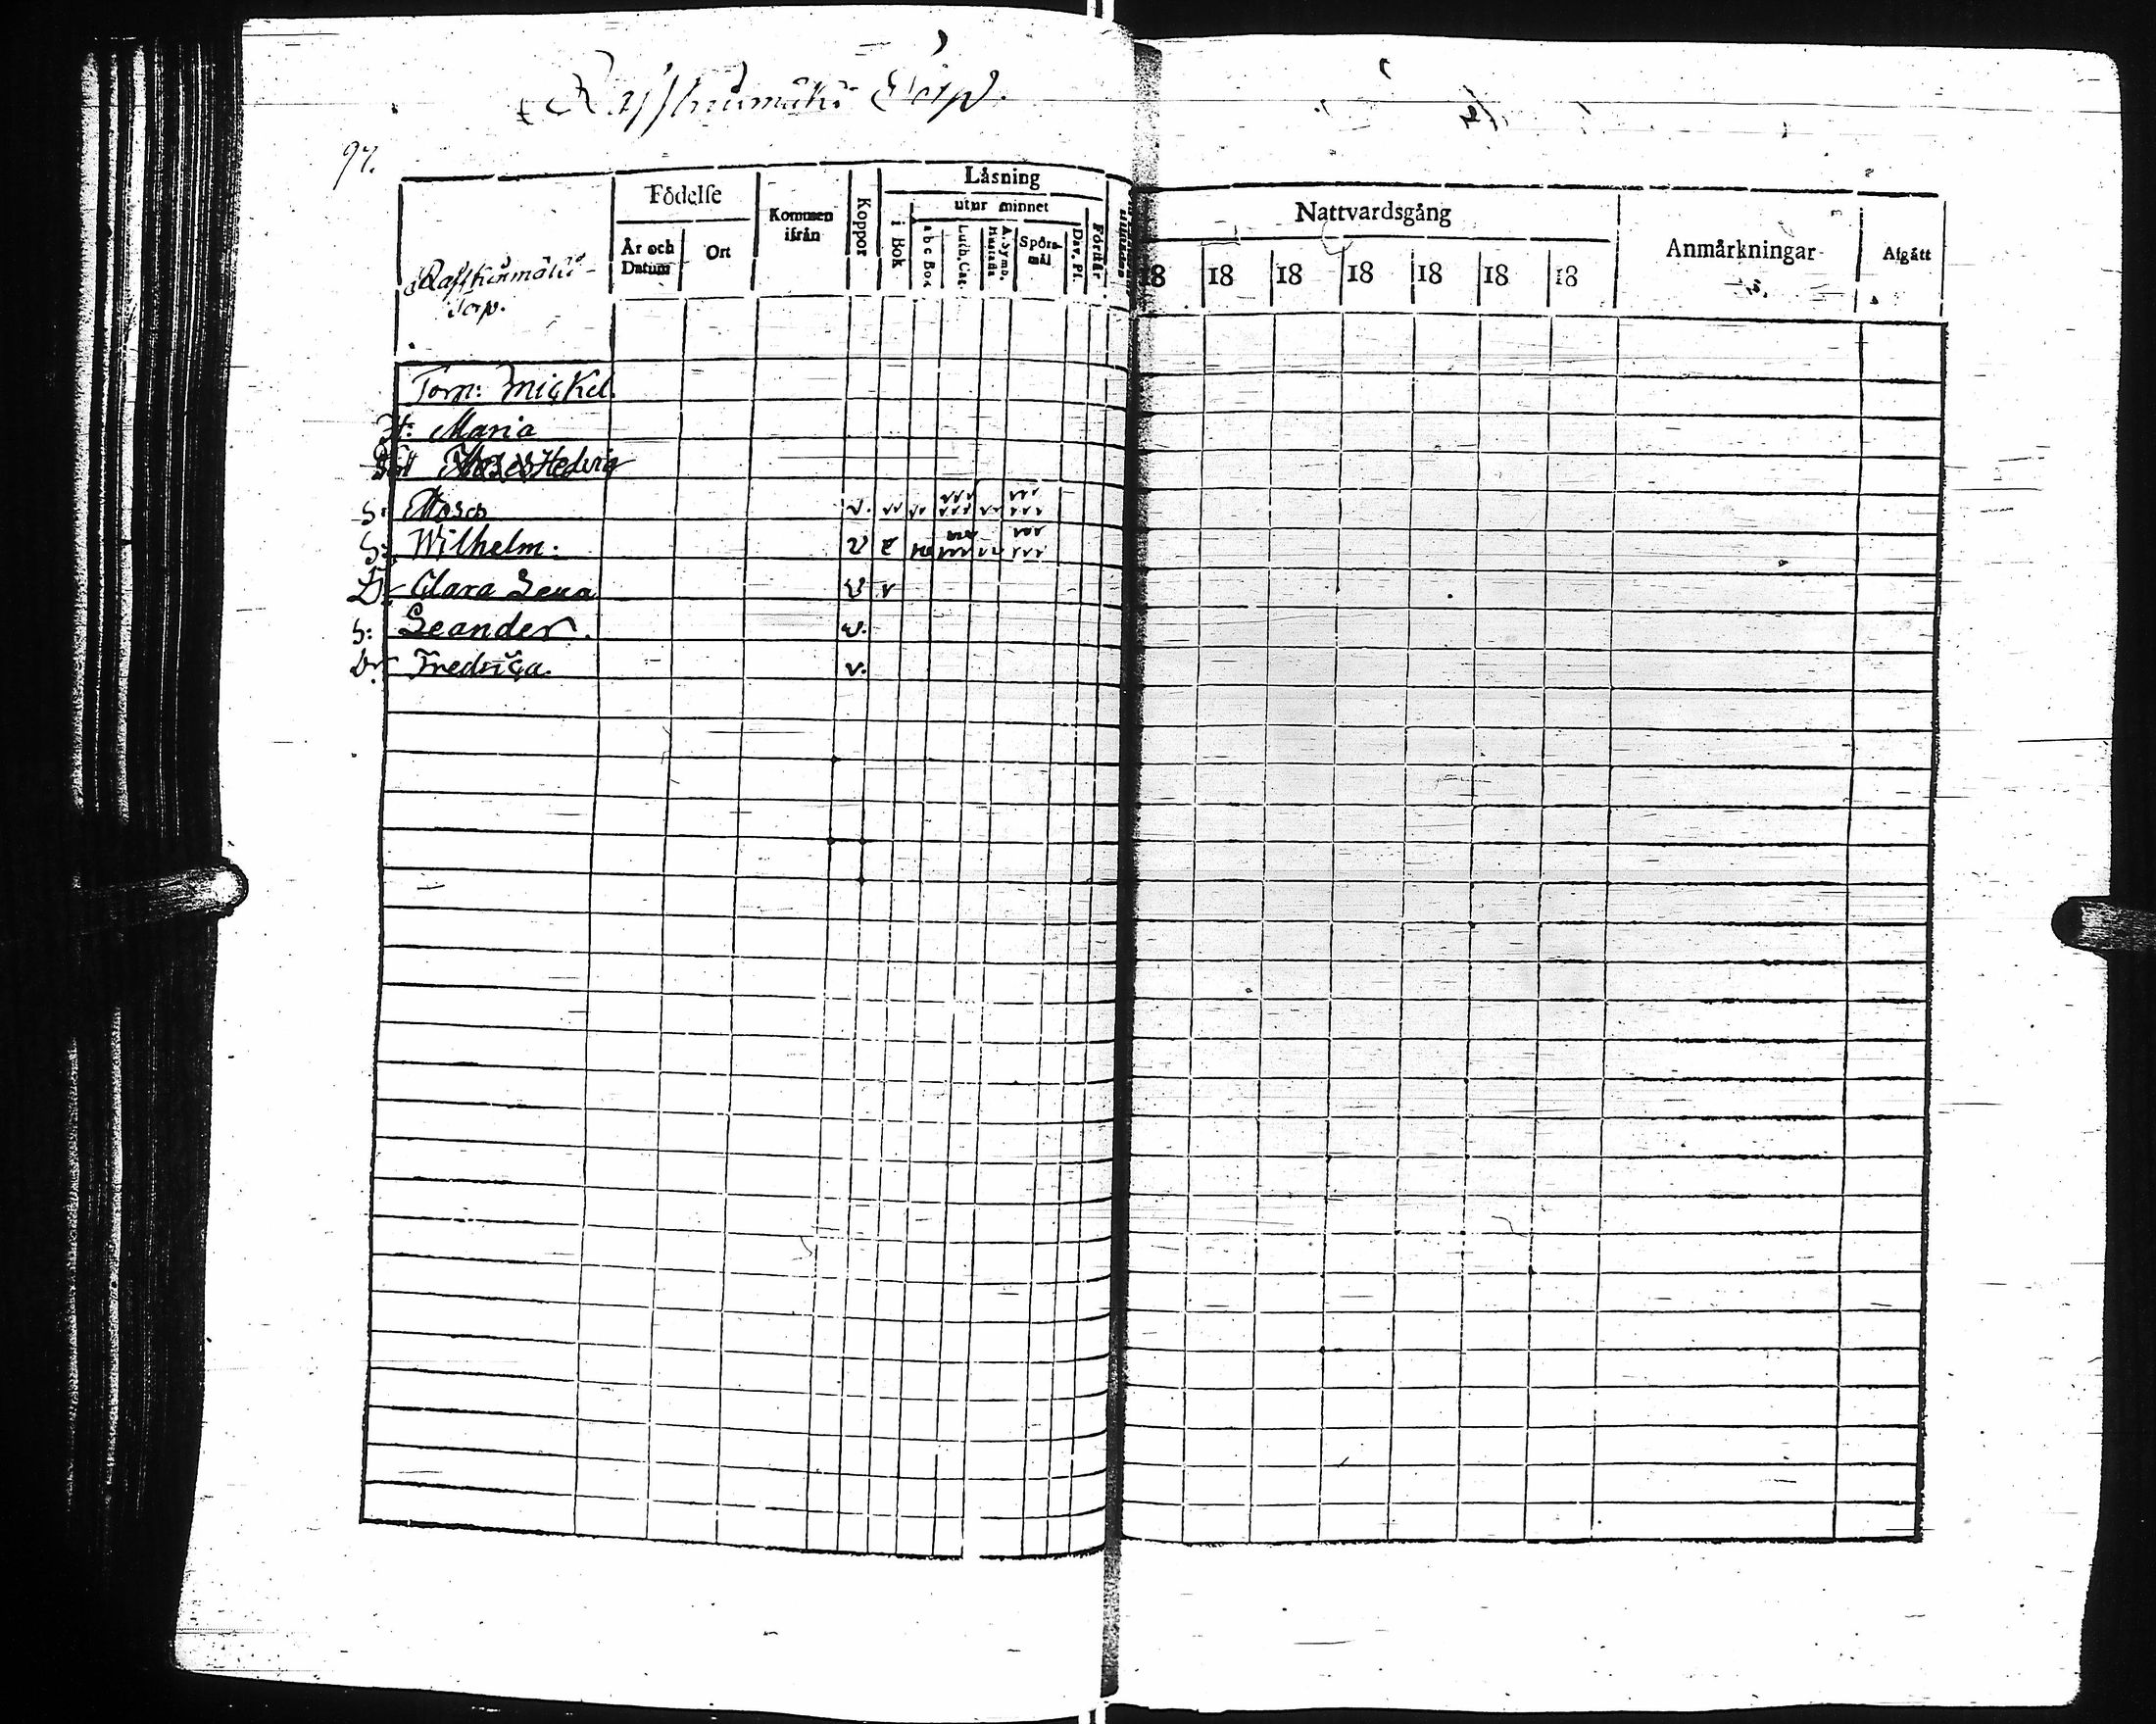 Torp.
97.
Födelse
Kommen ifrån
Koppor
Läsning
utur minnet
i Bok
a b c Bok
Luth. Cat.
A. Symb.
Spörs-mål
Dav. Ps.
Förstår
År och Datum
Ort
Nattvardsgång
18 18 18 18 18 18 18
Anmärkningar
Afgått
Torp.
Torp: Mickel.
H: Maria
Hedvig
S: Moses v.
S: Wilhelm: v
Dr Clara Lena v v
S: Leander. v.
Dr Fredrica. v.